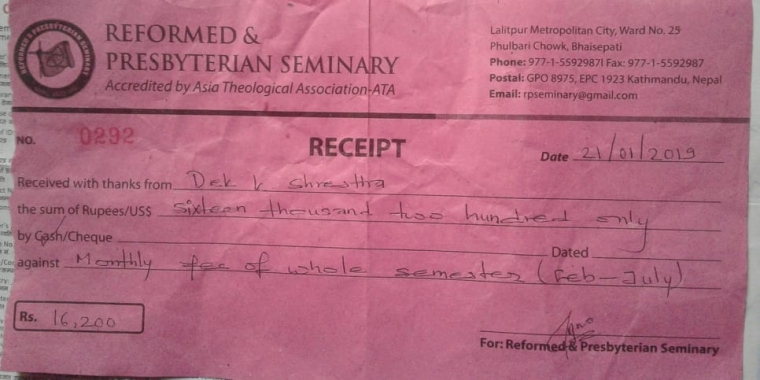 REFORMED & PRESBYTERIAN SEMINARY
REFORMED &
PRESBYTERIAN SEMINARY
Accredited by Asia Theological Association-ATA
Lalitpur Metropolitan City, Ward No. 25
Phulbari Chowk, Bhaisepati
Phone: 977-1-5592987I Fax: 977-1-5592987
Postal: GPO 8975, EPC 1923 Kathmandu, Nepal
Email: rpseminary@gmail.com
NO. 0292
RECEIPT
Date 21/01/2019
Received with thanks from Dek k Shrestha
the sum of Rupees/US$ sixteen thousand two hundred only
by Cash/Cheque Dated
against Monthly fee of whole semester (Feb-July)
Rs. 16,200
For: Reformed & Presbyterian Seminary